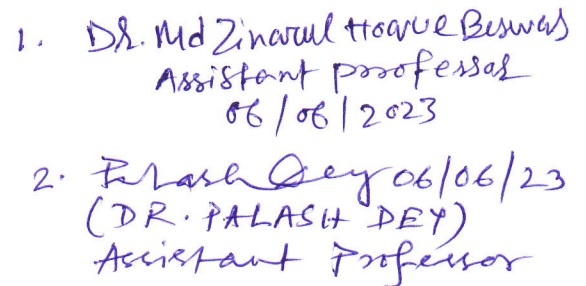 1. Dr. Md Zinarul Hoque Biswas
Assistant professor
06/06/2023
2. Palash Dey 06/06/23
(DR. PALASH DEY)
Assistant Professor